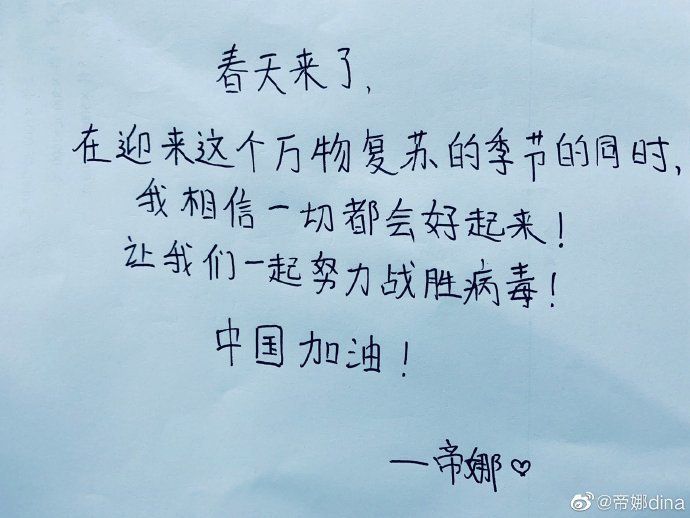 春天来了,
在迎来这个万物复苏的季节的同时,
我相信一切都会好起来!
让我们一起努力战胜病毒!
中国加油!
—帝娜♡
@帝娜dina